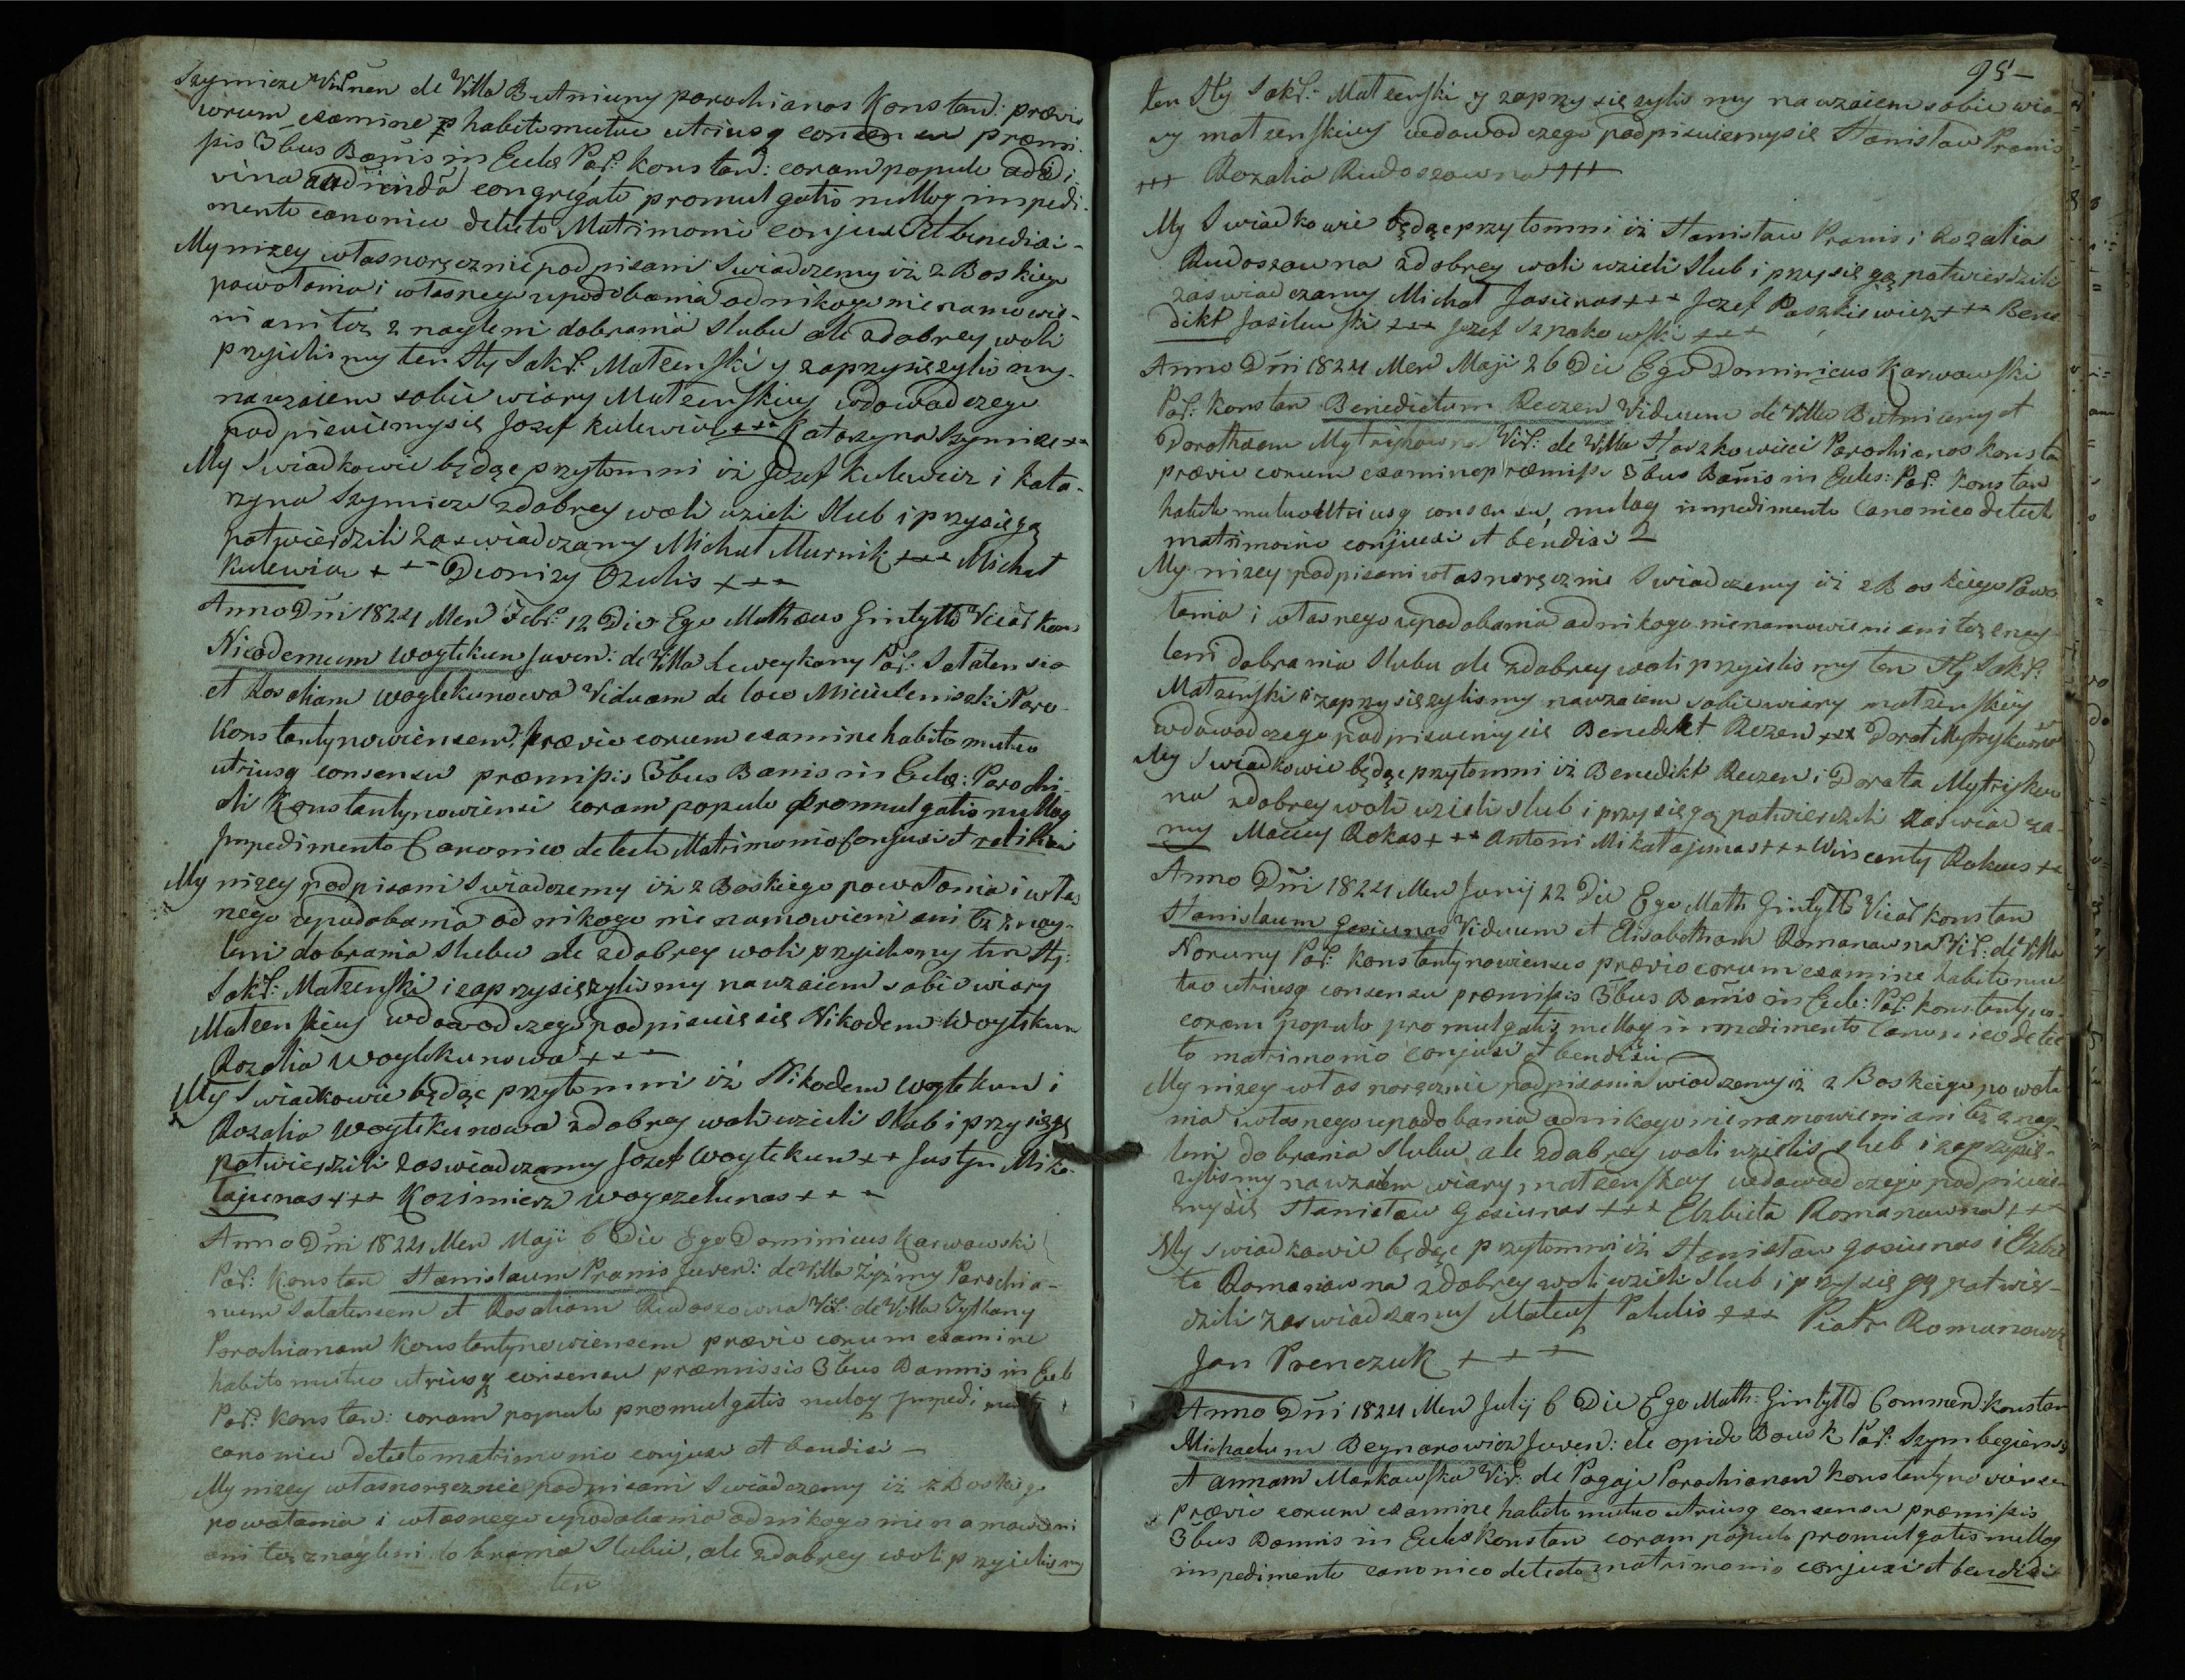 Szymicze Virginen de Villa Butniuny parochianos Konstand: prævio
eorum examine habito mutuo utriusq consensu præmi-
ssis 3bus Bañis in Ecclæ Par: Konstan: coram populo ad di-
vina audienda congregato promulgatis nulloq impedi-
mento canonico detecto Matrimonio conjunxi Et benedixi -
My nizey własnoręcznie podpisani Swiadczemy iż z Boskiego
powołania i własnego upodobania od nikogo nie namowie-
ni ani też z nagleni dobrania Slubu ale zdobrey woli
przyielismy ten Sty Sakr: Małzenski y zaprzysięzylismy
nawzaiem sobie wiary Małzenskiey wdowod czego
podpisuiemysię Jozef Kulewicz +++ Katarzyna Szymicze ++
My Swiadkowie będąc przytomni iż Jozef Kulewicz i Kata-
rzyna Szymicze zdobrey woli wzieli Slub i przysięgą
potwierdzili Zaswiadczamy Michał Murnik +++ Michał
Kulewicz +++ Dionizy Ozulis +++
Anno Dñi 1824 Men Febr: 12 Die Ego Mathæus Gintyłło Vicar Kons
Nicodemum Woytekun Juven: de Villa Leweykany Par: Sałaten sis
et Rosaliam Woytekunowa Viduam de loco Miciuleniszki Paro
Konstantynowiensem, prævio eorum examine habito mutuo
utriusq consensu præmissis 3bus Banis in Eclæ: Parochi-
ali Konstantynowiensi coram populo promulgatis nulloq
Impedimento Canonico detecto Matrimonio Conjunxi et ratihavi
My nizey podpisani Swiadczemy iż z Boskiego powołania i włas
nego upodobania od nikogo nie namowieni ani też z nag-
leni dobrania Slubu ale zdobrey woli przyielismy ten Sty:
Sakr: Małzenski i zaprzysięzylismy nawzaiem sobie wiary
Małzenskiey wdowod czego podpisuię się Nikodem Woytekun
Rozalia Woytekunowa +++
My Swiadkowie będąc przytomni iż Nikodem Woytekun i
Rozalia Woytekunowa zdobrey woli wzieli Slub i przysięgą
potwierdzili zaswiadczamy Jozef Woytekun ++ Justyn Mika-
łajunas +++ Kazimierz Woyszelunas +++
Anno Dñi 1824 Men Maji 6 Die Ego Dominicus Karwowski
Par: Konstan Stanislaum Pranis Juven: de Villa Żyżmy Parochia-
num Sałatensem et Rosaliam Rudoszowna Vir: de Villa Tyłkany
Parochianam Konstantynowiensem prævio eorum examine
habito mutuo utriusq consensu præmissis 3bus Bannis in Eccle
Par: Konstan: coram populo promulgatis nuloq Impedi mento
canonico detecto matrimonio conjunxi et bendixi —
My nizey własnoręcznie podpisani Swiadczemy iż z Boskiego
powołania i własnego upodobania od nikogo nie namowieni
ani też z nagleni do brania Slubu, ale zdobrey woli przyielismy
ten
95 -
ten Sty Sakr: Małzenski y zaprzysięzylismy nawzaiem sobie wia-
ry małzenskiey wdowod czego podpisuiemysię Stanisław Pranis
+++ Rozalia Rudoszowna +++
My Swiadkowie będąc przytomni iż Stanisław Pranis i Rozalia
Rudoszowna zdobrey woli wzieli Slub i przysięgą potwierdzili
zaswiadczamy Michał Jasiunas +++ Jozef Paszkiewicz +++ Bene
dikt Jasilunski +++ Jozef Szpakowski +++
Anno Dñi 1824 Men Maji 26 Die Ego Dominicus Karwowski
Par: Konstan Benedictum Reczen Viduum de Villa Butniuny et
Dorotheam Mytrykowna Vir: de Villa Staszkowieci Parochianos Konsta
prævio eorum examine præmissis 3bus Banis in Ecles: Par: Konstan
habito mutuo utriusq consensu, nuloq impedimento Canonico detecto
matrimonio conjunxi et bendixi
My nizey podpisani własnoręcznie Swiadczemy iż z Boskiego Powo
łania i własnego upodobania od nikogo nie namowieni ani też z nag-
leni dobrania Slubu ale zdobrey woli przyielismy ten Sty Sakr:
Małzenski i zaprzysięzylismy nawzaiem sobie wiary małzenskiey
wdowod czego podpisuiemysię Benedikt Reczen +++ Dorot Mytrykown
My Swiadkowie będąc przytomni iż Benedikt Reczen i Dorota Mytrykow
na zdobrey woli wzieli slub i przysięgą potwierdzili Zaswiadcza-
my Maciey Rokas +++ Antoni Mikałajunas +++ Wincenty Rokas ++
Anno Dñi 1824 Men Junij 22 Die Ego Math Gintyłło Vicar Konstan
Stanislaum Gasiunas Viduum et Elisabetham Romanowna Vir: de Villa
Noruny Par: Konstantynowienses prævio eorum examine habito mu
tuo utriusq consensu præmissis 3bus Banis in Ecle: Par: Konstantynow
coram populo promulgatis nulloq impedimento Canonico detec
to matrimonio conjunxi et bendixi
My nizey własnoręcznie podpisani Swiadczemy iż z Boskiego powoła
nia własnego upodobania od nikogo nie namowieni ani też z nag-
leni do brania Slubu, ale zdobrey woli wzielis sleb i zaprzysię-
zylismy nawzaiem wiary małzenskiey wdowod czego podpisuie-
mysię Stanisław Gasiunas +++ Elzbieta Romanowna +++
My Swiadkowie będąc przytomni iż Stanisław Gasiunas i Elzbie
ta Romanowna zdobrey woli wzieli Slub i przysięgą potwier-
dzili zaswiadczamy Mateusz Palulis +++ Piotr Romanowicz
Jan Prenczuk +++
Anno Dñi 1824 Men Julij 6 Die Ego Math: Gintyłło Commend: Konstan
Michaelum Beynarowicz Juven: de opido Bowsk Par: Szymbegiens
et annam Markowska Vir: de Pogaje Parochianam Konstantynowiensem
prævio eorum examine habito mutuo utriusq consensu præmissis
3bus Bannis in Ecles Konstan coram populo promulgatis nulloq
impedimento canonico detecto matrimonio conjunxi et bendixi